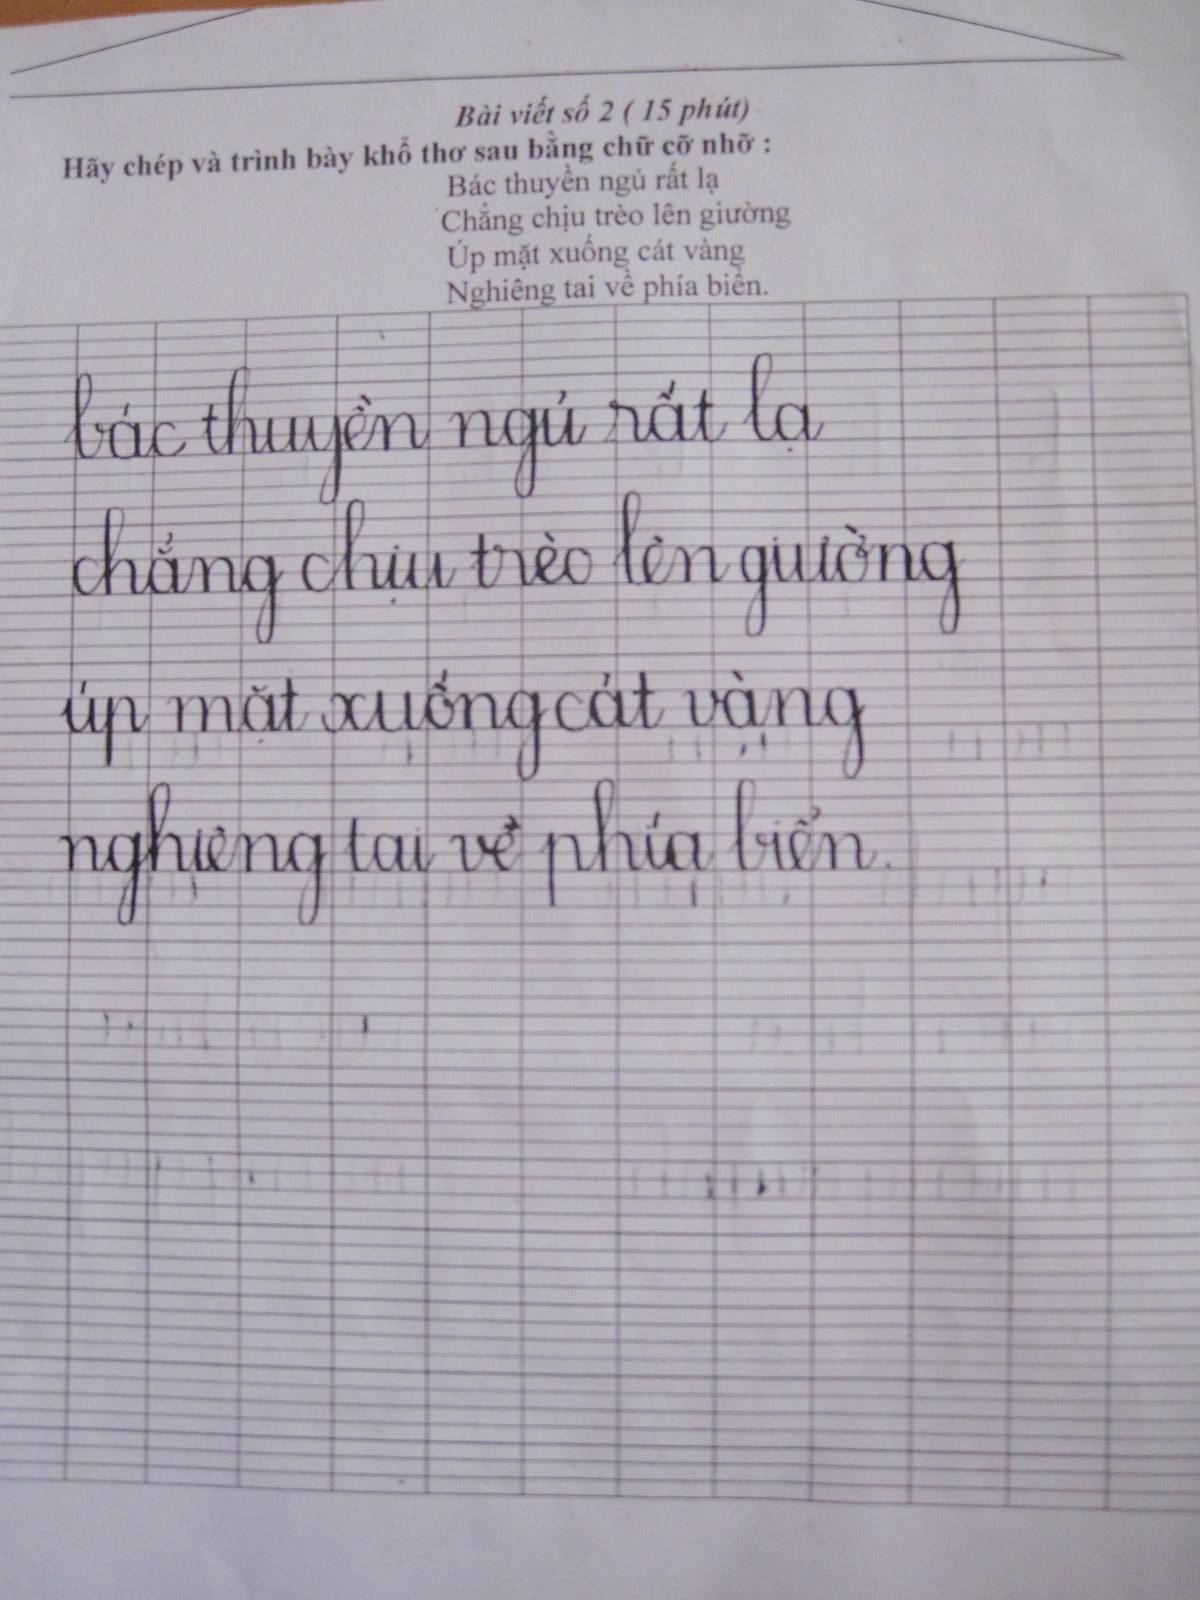 Bài viết số 2 ( 15 phút)
Hãy chép và trình bày khổ thơ sau bằng chữ cỡ nhỡ :
Bác thuyền ngủ rất lạ
Chẳng chịu trèo lên giường
Úp mặt xuống cát vàng
Nghiêng tai về phía biển.
bác thuyền ngủ rất lạ
chẳng chịu trèo lên giường
úp mặt xuống cát vàng
nghiêng tai về phía biển.